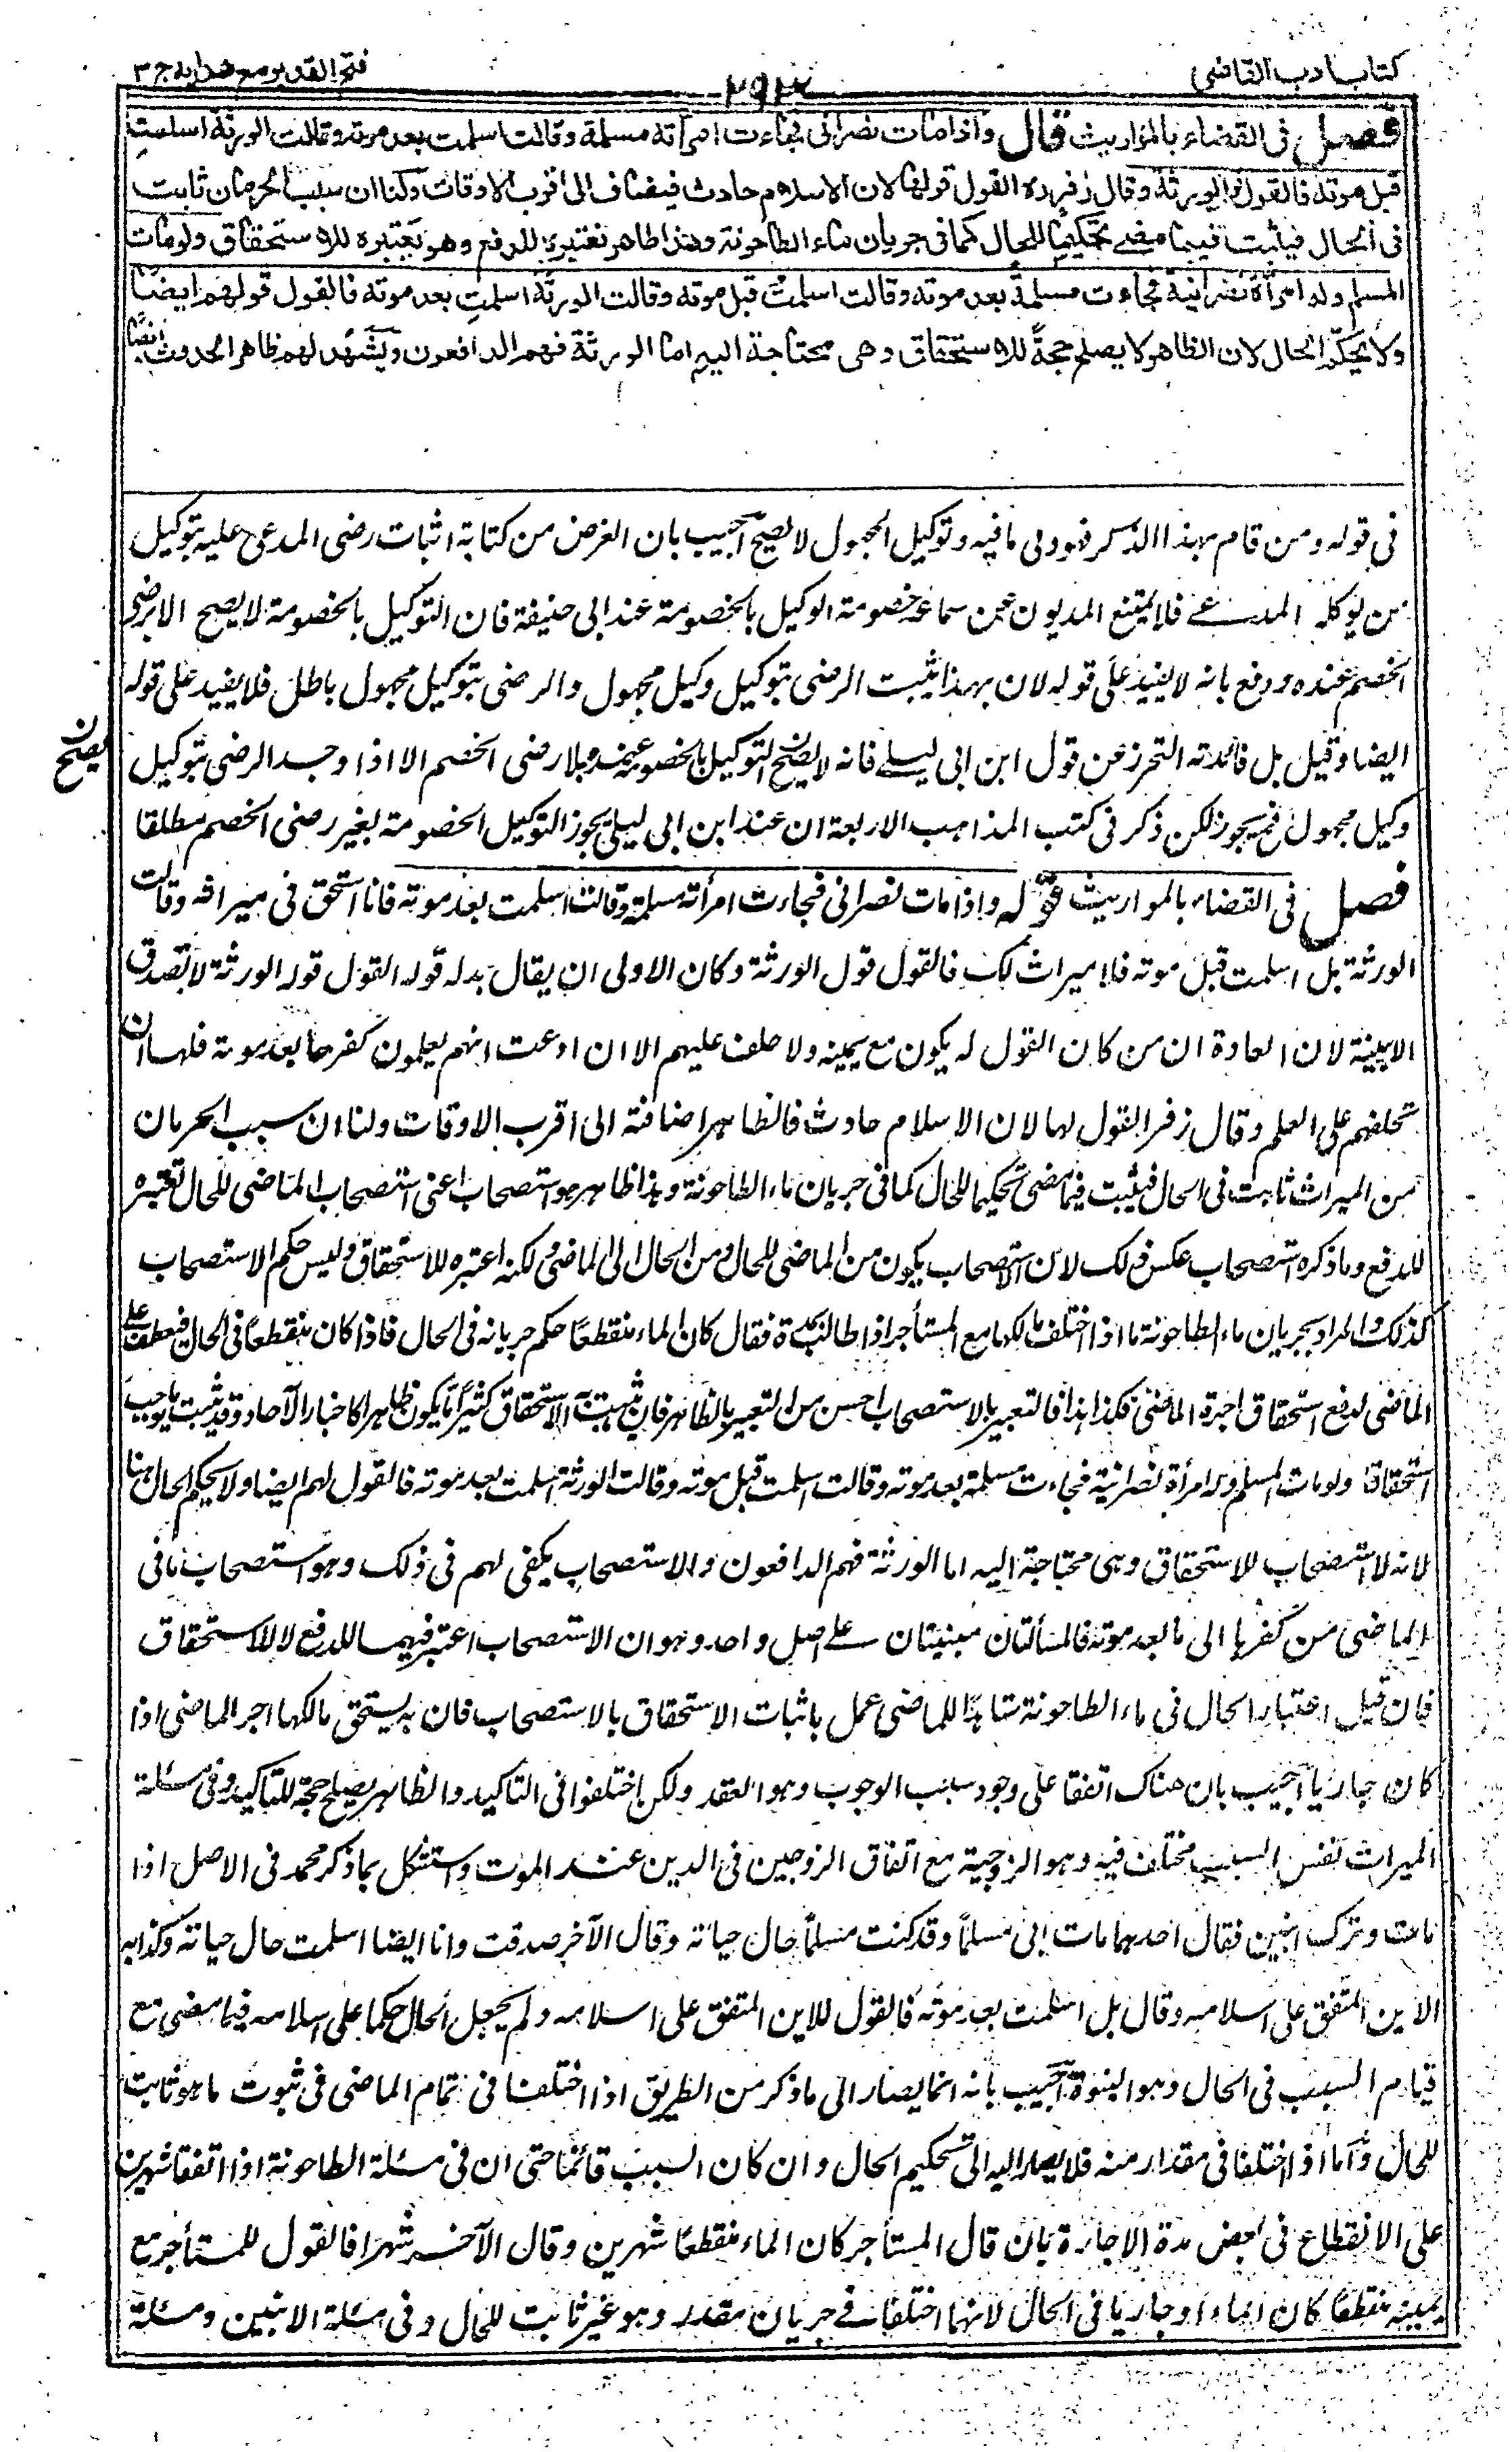 كتاب ادب القاضي
٢٩٣
فتح القدير مع هدايه ج ٣
فصل في القضاء بالمواريث قال واذا مات نصراني فجاءت امرأته مسلمة وقالت اسلمت بعد موته وقالت الورثة اسلمت
قبل موته فالقول قول الورثة وقال زفر ره القول قولها لان الاسلام حادث فيضاف الى اقرب الاوقات ولنا ان سبب الحرمان ثابت
في الحال فيثبت فيما مضى تحكيما للحال كما في جريان ماء الطاحونة وهذا ظاهر نعتبره للدفع وهو يعتبره للاستحقاق ولومات
المسلم وله امرأة نصرانية فجاءت مسلمة بعد موته وقالت اسلمت قبل موته وقالت الورثة اسلمت بعد موته فالقول قولهم ايضا
ولا يحكم الحال لان الظاهر لا يصلح حجة للاستحقاق وهي محتاجة اليه اما الورثة فهم الدافعون ويشهد لهم ظاهر الحدوث ايضا
في قوله ومن قام بهذا الذكر فهو ولى ما فيه وتوكيل المجهول لا يصح اجيب بان الغرض من كتابة اثبات رضى المدعى عليه بتوكيل
من يوكله المدعى فلا يمتنع المديون عن سماعه خصومة الوكيل بالخصومة عند ابى حنيفة فان التوكيل بالخصومة لا يصح الا برضى
الخصم عنده ودفع بانه لا يفيد على قوله لان بهذا يثبت الرضى بتوكيل وكيل مجهول والرضى بتوكيل مجهول باطل فلا يفيد على قوله
ايضا وقيل بل فائدته التحرز عن قول ابن ابى ليلى فانه لا يصح التوكيل بالخصومة عنده بلا رضى الخصم الا اذا وجد الرضى بتوكيل
يصح
وكيل مجهول فح يجوز لكن ذكر في كتب المذاهب الاربعة ان عند ابن ابى ليلى يجوز التوكيل الخصومة بغير رضى الخصم مطلقا
فصل في القضاء بالمواريث قوله واذا مات نصراني فجاءت امرأته مسلمة وقالت اسلمت بعد موته فانا استحق في ميراثه وقالت
الورثة بل اسلمت قبل موته فلا ميراث لك فالقول قول الورثة وكان الاولى ان يقال بدله قوله القول قوله الورثة لا تصدق
الا ببينة لان العادة ان من كان القول له يكون مع يمينه ولا حلف عليهم الا ان ادعت انهم يعلمون كفرها بعد موته فلها ان
تحلفهم على العلم وقال زفر القول لها لان الاسلام حادث فالظاهر اضافته الى اقرب الاوقات ولنا ان سبب الحرمان
من الميراث ثابت في الحال فيثبت فيما مضى تحكيما للحال كما في جريان ماء الطاحونة وهذا ظاهر هو استصحاب اعنى استصحاب الماضى للحال نعتبره
للدفع وما ذكره استصحاب عكس ذلك لان الاستصحاب يكون من الماضى للحال ومن الحال الى الماضى لكنه اعتبره للاستحقاق وليس حكم الاستصحاب
كذلك والمراد بجريان ماء الطاحونة ما اذا اختلف مالكها مع المستأجر اذا طالبه بالاجرة فقال كان الماء منقطعا حكم جريانه في الحال فاذا كان منقطعا في الحال فيعطف على
الماضى لدفع استحقاق اجرة الماضى فكذا هذا فالتعبير بالاستصحاب احسن من التعبير بالظاهر فان ثبت الاستحقاق كثيرا ما يكون ظاهرا كاخبار الآحاد وقد ثبت ما يوجب
استحقاقا ولو مات المسلم وله امرأة نصرانية فجاءت مسلمة بعد موته وقالت اسلمت قبل موته وقالت الورثة اسلمت بعد موته فالقول لهم ايضا ولا يحكم الحال هنا
لانه لا استصحاب للاستحقاق وهى محتاجة اليه اما الورثة فهم الدافعون والاستصحاب يكفى لهم في ذلك وهو استصحاب ما في
الماضى من كفرها الى ما بعد موته فالمسألتان مبنيتان على اصل واحد وهو ان الاستصحاب اعتبر فيهما للدفع لا للاستحقاق
فان قيل اعتبار الحال في ماء الطاحونة شاهدا للماضى عمل باثبات الاستحقاق بالاستصحاب فان به يستحق مالكها اجر الماضى اذا
كان جاريا اجيب بان هناك اتفقا على وجود سبب الوجوب وهو العقد ولكن اختلفوا في التاكيد والظاهر يصلح حجة للتاكيد وفى مسئلة
الميراث نفس السبب مختلف فيه وهو الزوجية مع اتفاق الزوجين في الدين عند الموت واستشكل بما ذكر محمد في الاصل اذا
مات وترك ابنين فقال احدهما مات ابى مسلما وقد كنت مسلما حال حياته وقال الآخر صدقت وانا ايضا اسلمت حال حياته وكذبه
الابن المتفق على اسلامه وقال بل اسلمت بعد موته فالقول للابن المتفق على اسلامه ولم يجعل الحال حكما على اسلامه فيما مضى مع
قيام السبب في الحال وهو البنوة اجيب بانه انما يصار الى ما ذكر من الطريق اذا اختلفا في تمام الماضى في ثبوت ما هو ثابت
للحال واما اذا اختلفا في مقدار منه فلا يصار اليه الى تحكيم الحال وان كان السبب قائما حتى ان في مسئلة الطاحونة اذا اتفقا شهرين
على الانقطاع في بعض مدة الاجارة بان قال المستأجر كان الماء منقطعا شهرين وقال الآخر شهرا فالقول للمستأجر مع
يمينه منقطعا كان الماء او جاريا في الحال لانهما اختلفا في جريان مقدر وهو غير ثابت للحال وفى مسئلة الابنين ومسئلة